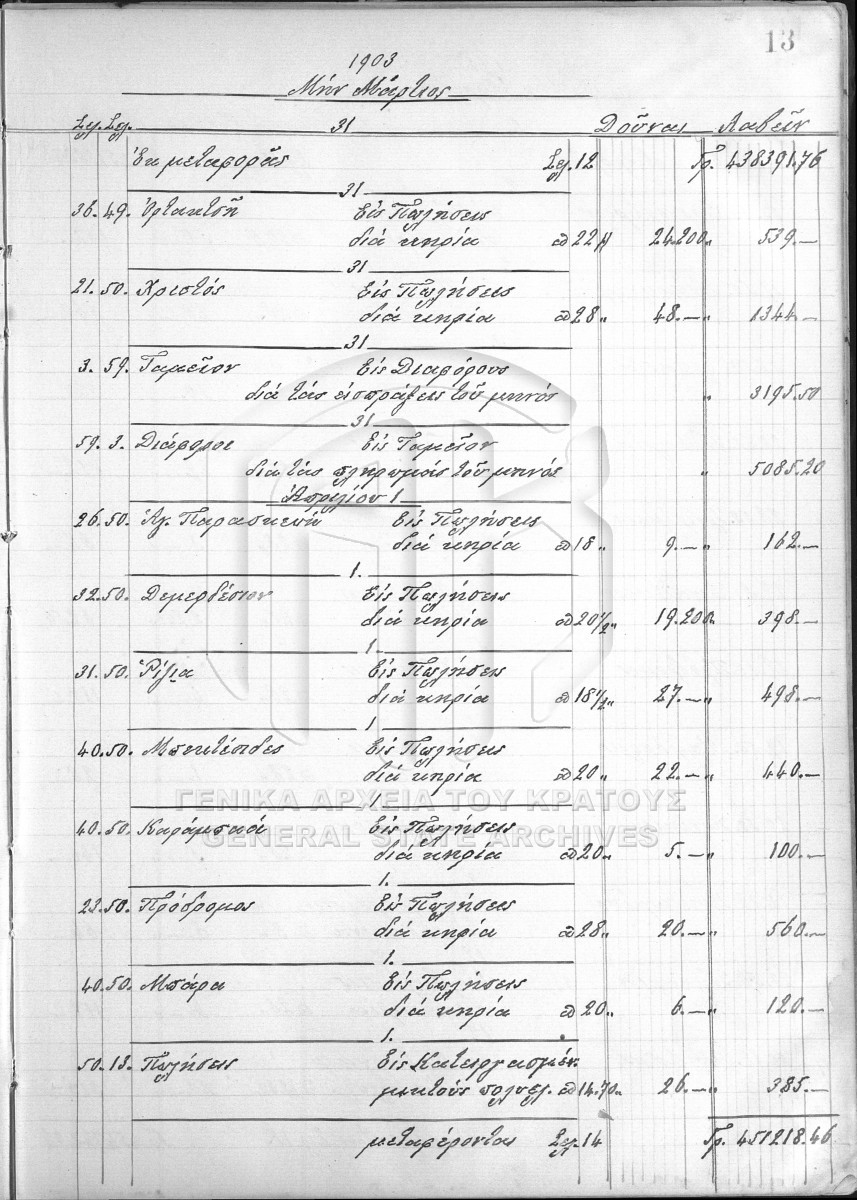 13
1903
Μὴν Μάρτιος
Σελ. Σελ. 31 Δοῦναι Λαβεῖν
Ἐκ μεταφορᾶς Σελ. 12 Γρ. 438391.76
31
38. 49. Ὀρτακτσῆ Εἰς Πωλήσεις
διὰ κηρία ⲁ 22 24.200 " 539.—
31
21. 50. Χριστός Εἰς Πωλήσεις
διὰ κηρία ⲁ 28 " 48.— " 1344.—
31
3. 59. Ταμεῖον Εἰς Διαφόρους
διὰ τὰς εἰσπράξεις τοῦ μηνός " 3195.50
31
59. 3. Διάφοροι Εἰς Ταμεῖον
διὰ τὰς πληρωμὰς τοῦ μηνός " 5085.20
Ἀπριλίου 1
26. 50. Ἁγ. Παρασκευὴ Εἰς Πωλήσεις
διὰ κηρία ⲁ 18 " 9.— " 162.—
1.
32. 50. Δεμερδέσιον Εἰς Πωλήσεις
διὰ κηρία ⲁ 20 1/2 " 19.200 " 398.—
1.
31. 50. Εἰς Πωλήσεις
διὰ κηρία ⲁ 18 1/2 " 27.— " 498.—
1
40. 50. Εἰς Πωλήσεις
διὰ κηρία ⲁ 20 " 22.— " 440.—
1
ΓΕΝΙΚΑ ΑΡΧΕΙΑ ΤΟΥ ΚΡΑΤΟΥΣ
GENERAL STATE ARCHIVES
40. 50. Εἰς Πωλήσεις
διὰ κηρία ⲁ 20 " 5.— " 100.—
1.
23. 50. Πρόδρομος Εἰς Πωλήσεις
διὰ κηρία ⲁ 28 " 20.— " 560.—
1.
40. 50. Μπάρα Εἰς Πωλήσεις
διὰ κηρία ⲁ 20 " 6.— " 120.—
1.
50. 13. Πωλήσεις Εἰς Κατειργασμέν.
πολυελ. ⲁ 14.70 " 26.— " 385.—
μεταφέρονται Σελ. 14 Γρ. 451218.46